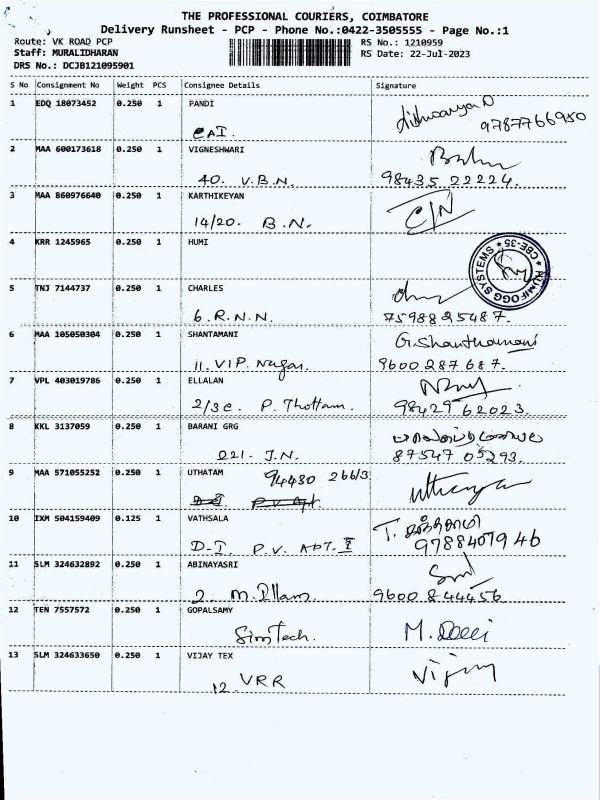 THE PROFESSIONAL COURIERS, COIMBATORE
Delivery Runsheet - PCP - Phone No.:0422-3505555 - Page No.:1
Route: VK ROAD PCP
Staff: MURALIDHARAN
DRS No.: DCJB121095901
RS No.: 1210959
RS Date: 22-Jul-2023
S No Consignment No Weight PCS Consignee Details Signature
1 EDQ 18073452 0.250 1 PANDI
9787766950
2 MAA 600173618 0.250 1 VIGNESHWARI
40. V.B.N. 98435 22224.
3 MAA 860976640 0.250 1 KARTHIKEYAN
14/20. B.N.
4 KRR 1245965 0.250 1 HUMI
HUMIFOGG SYSTEMS * CBE-35 *
5 TNJ 7144737 0.250 1 CHARLES
6. R.N.N. 7598825487.
6 MAA 105050304 0.250 1 SHANTAMANI G.Shanthamani
11. VIP Nagar. 9600287687.
7 VPL 403019786 0.250 1 ELLALAN
2/3C. P. Thottam. 98429 62023.
8 KKL 3137059 0.250 1 BARANI GRG
221. J.N. 87547 05293.
9 MAA 571055252 0.250 1 UTHATAM 94430 266/3
10 IXM 504159409 0.125 1 VATHSALA
D-I P.V. APT. I 9788407946
11 SLM 324632892 0.250 1 ABINAYASRI
2. M. Illam. 9600844456
12 TEN 7557572 0.250 1 GOPALSAMY
SimTech.
13 SLM 324633650 0.250 1 VIJAY TEX Vijay
12 VRR